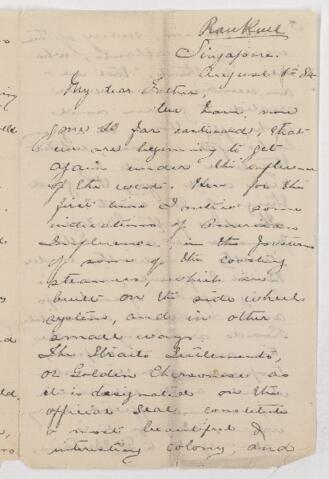 Singapore.
August 4th 84.
My dear Father,
We have now
gone so far eastward, that
we are beginning to get
again under the influence
of the west. Here for the
first time I notice some
indications of American
Influence in the
of some of the coasting
steamers, which are
built on the side wheel
system, and in other
small ways.
The Straits Settlements,
or Golden Chersonese as
it is designated on the
official Seal, constitute
a most beautiful &
interesting colony, and